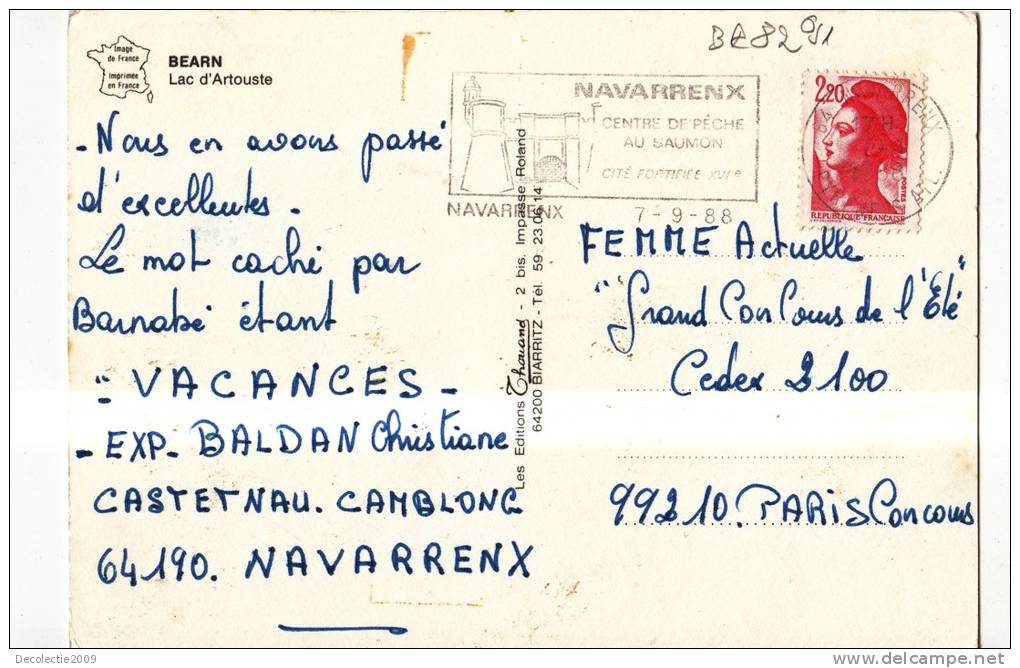 BE82 691
Image
de France
Imprimée
en France
BEARN
Lac d'Artouste
NAVARRENX
CENTRE DE PÊCHE
AU SAUMON
CITÉ FORTIFIÉE XVIe
NAVARRENX
7-9-88
2,20
POSTES
REPUBLIQUE FRANÇAISE
- Nous en avons passé
d'excellentes -
Le mot caché par
Barnabé étant
" VACANCES -
- EXP - BALDAN Christiane
CASTETNAU. CAMBLONG
64190. NAVARRENX
Les Editions Thouand - 2 bis. Impasse Roland
64200 BIARRITZ - Tél. 59. 23.06.14
FEMME Actuelle
"Grand Concours de l'Eté"
Cedex 2100
99210. PARIS Concours
Decolectie2009
delcampe.net